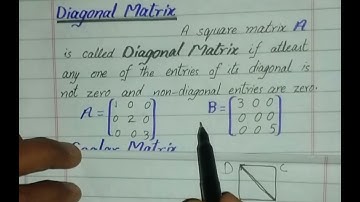 Diagonal Matrix
A square matrix A
is called Diagonal Matrix if atleast
any one of the entries of its diagonal is
not zero and non-diagonal entries are zero.
A = [1 0 0 B = [3 0 0
0 2 0 0 0 0
0 0 3] 0 0 5]
Scalar Matrix
D C